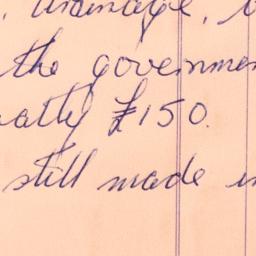 , drainage,
the governmen
£150.
still made in